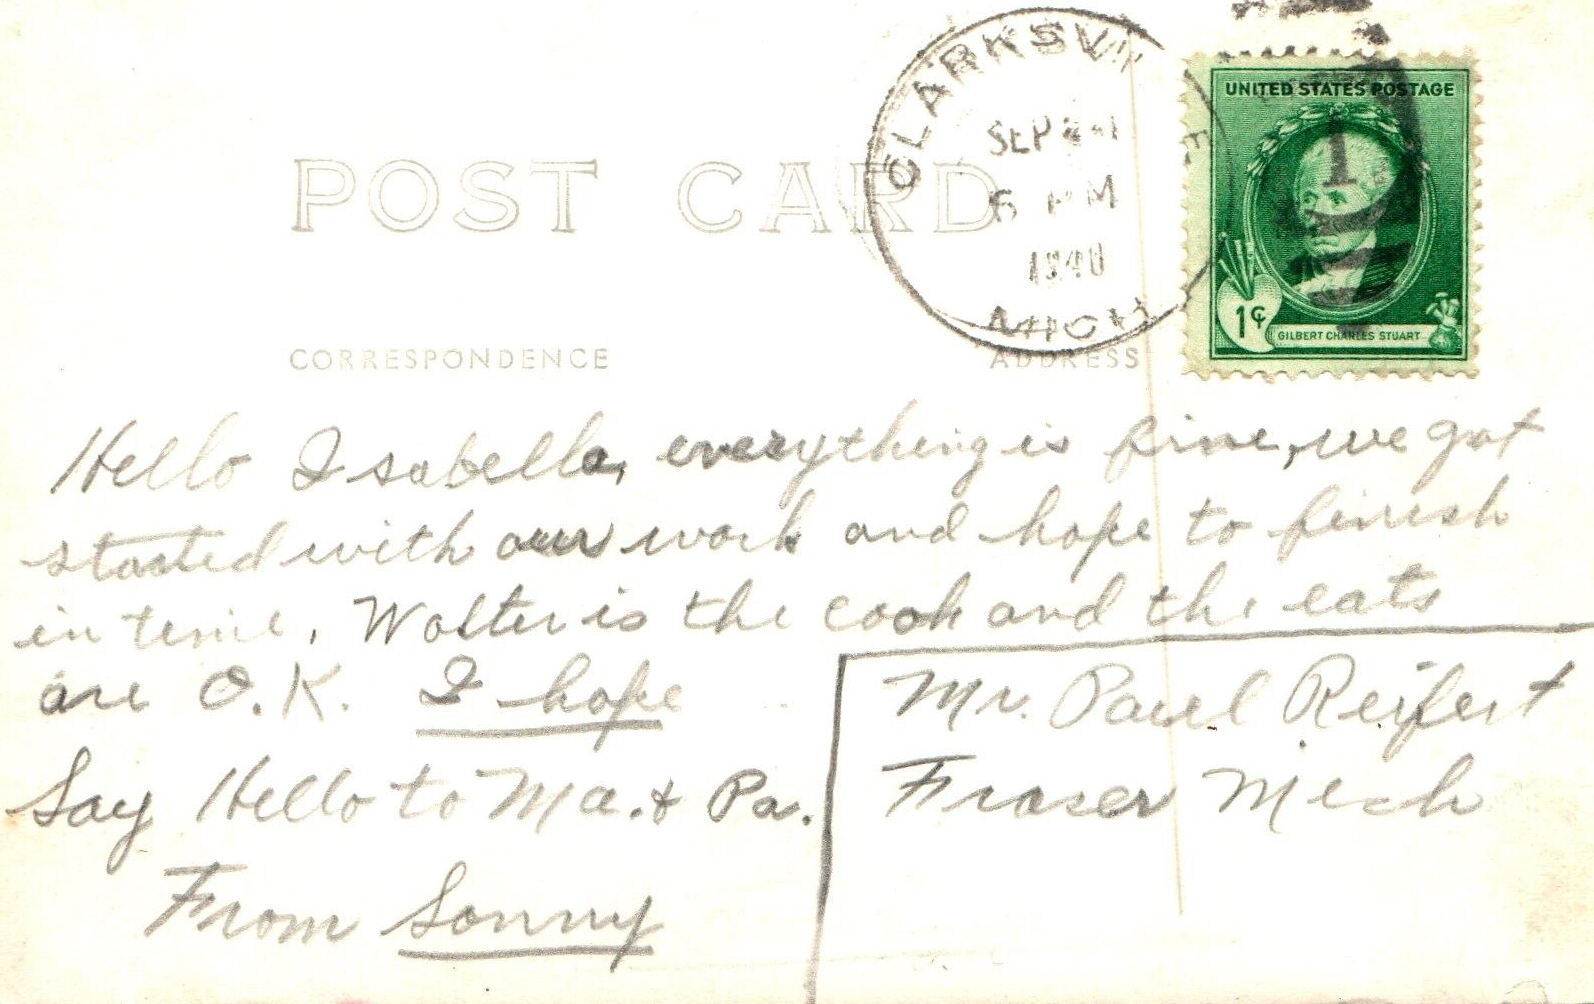 POST CARD
CLARKSVILLE
SEP
6 PM
1940
MICH
UNITED STATES POSTAGE
1
1¢
GILBERT CHARLES STUART
CORRESPONDENCE
ADDRESS
Hello Isabella, everything is fine, we got
started with our work and hope to finish
in time. Walter is the cook and the eats
are O.K. I hope
Say Hello to Ma. & Pa.
From Sonny
Mr. Paul Reifert
Fraser Mich